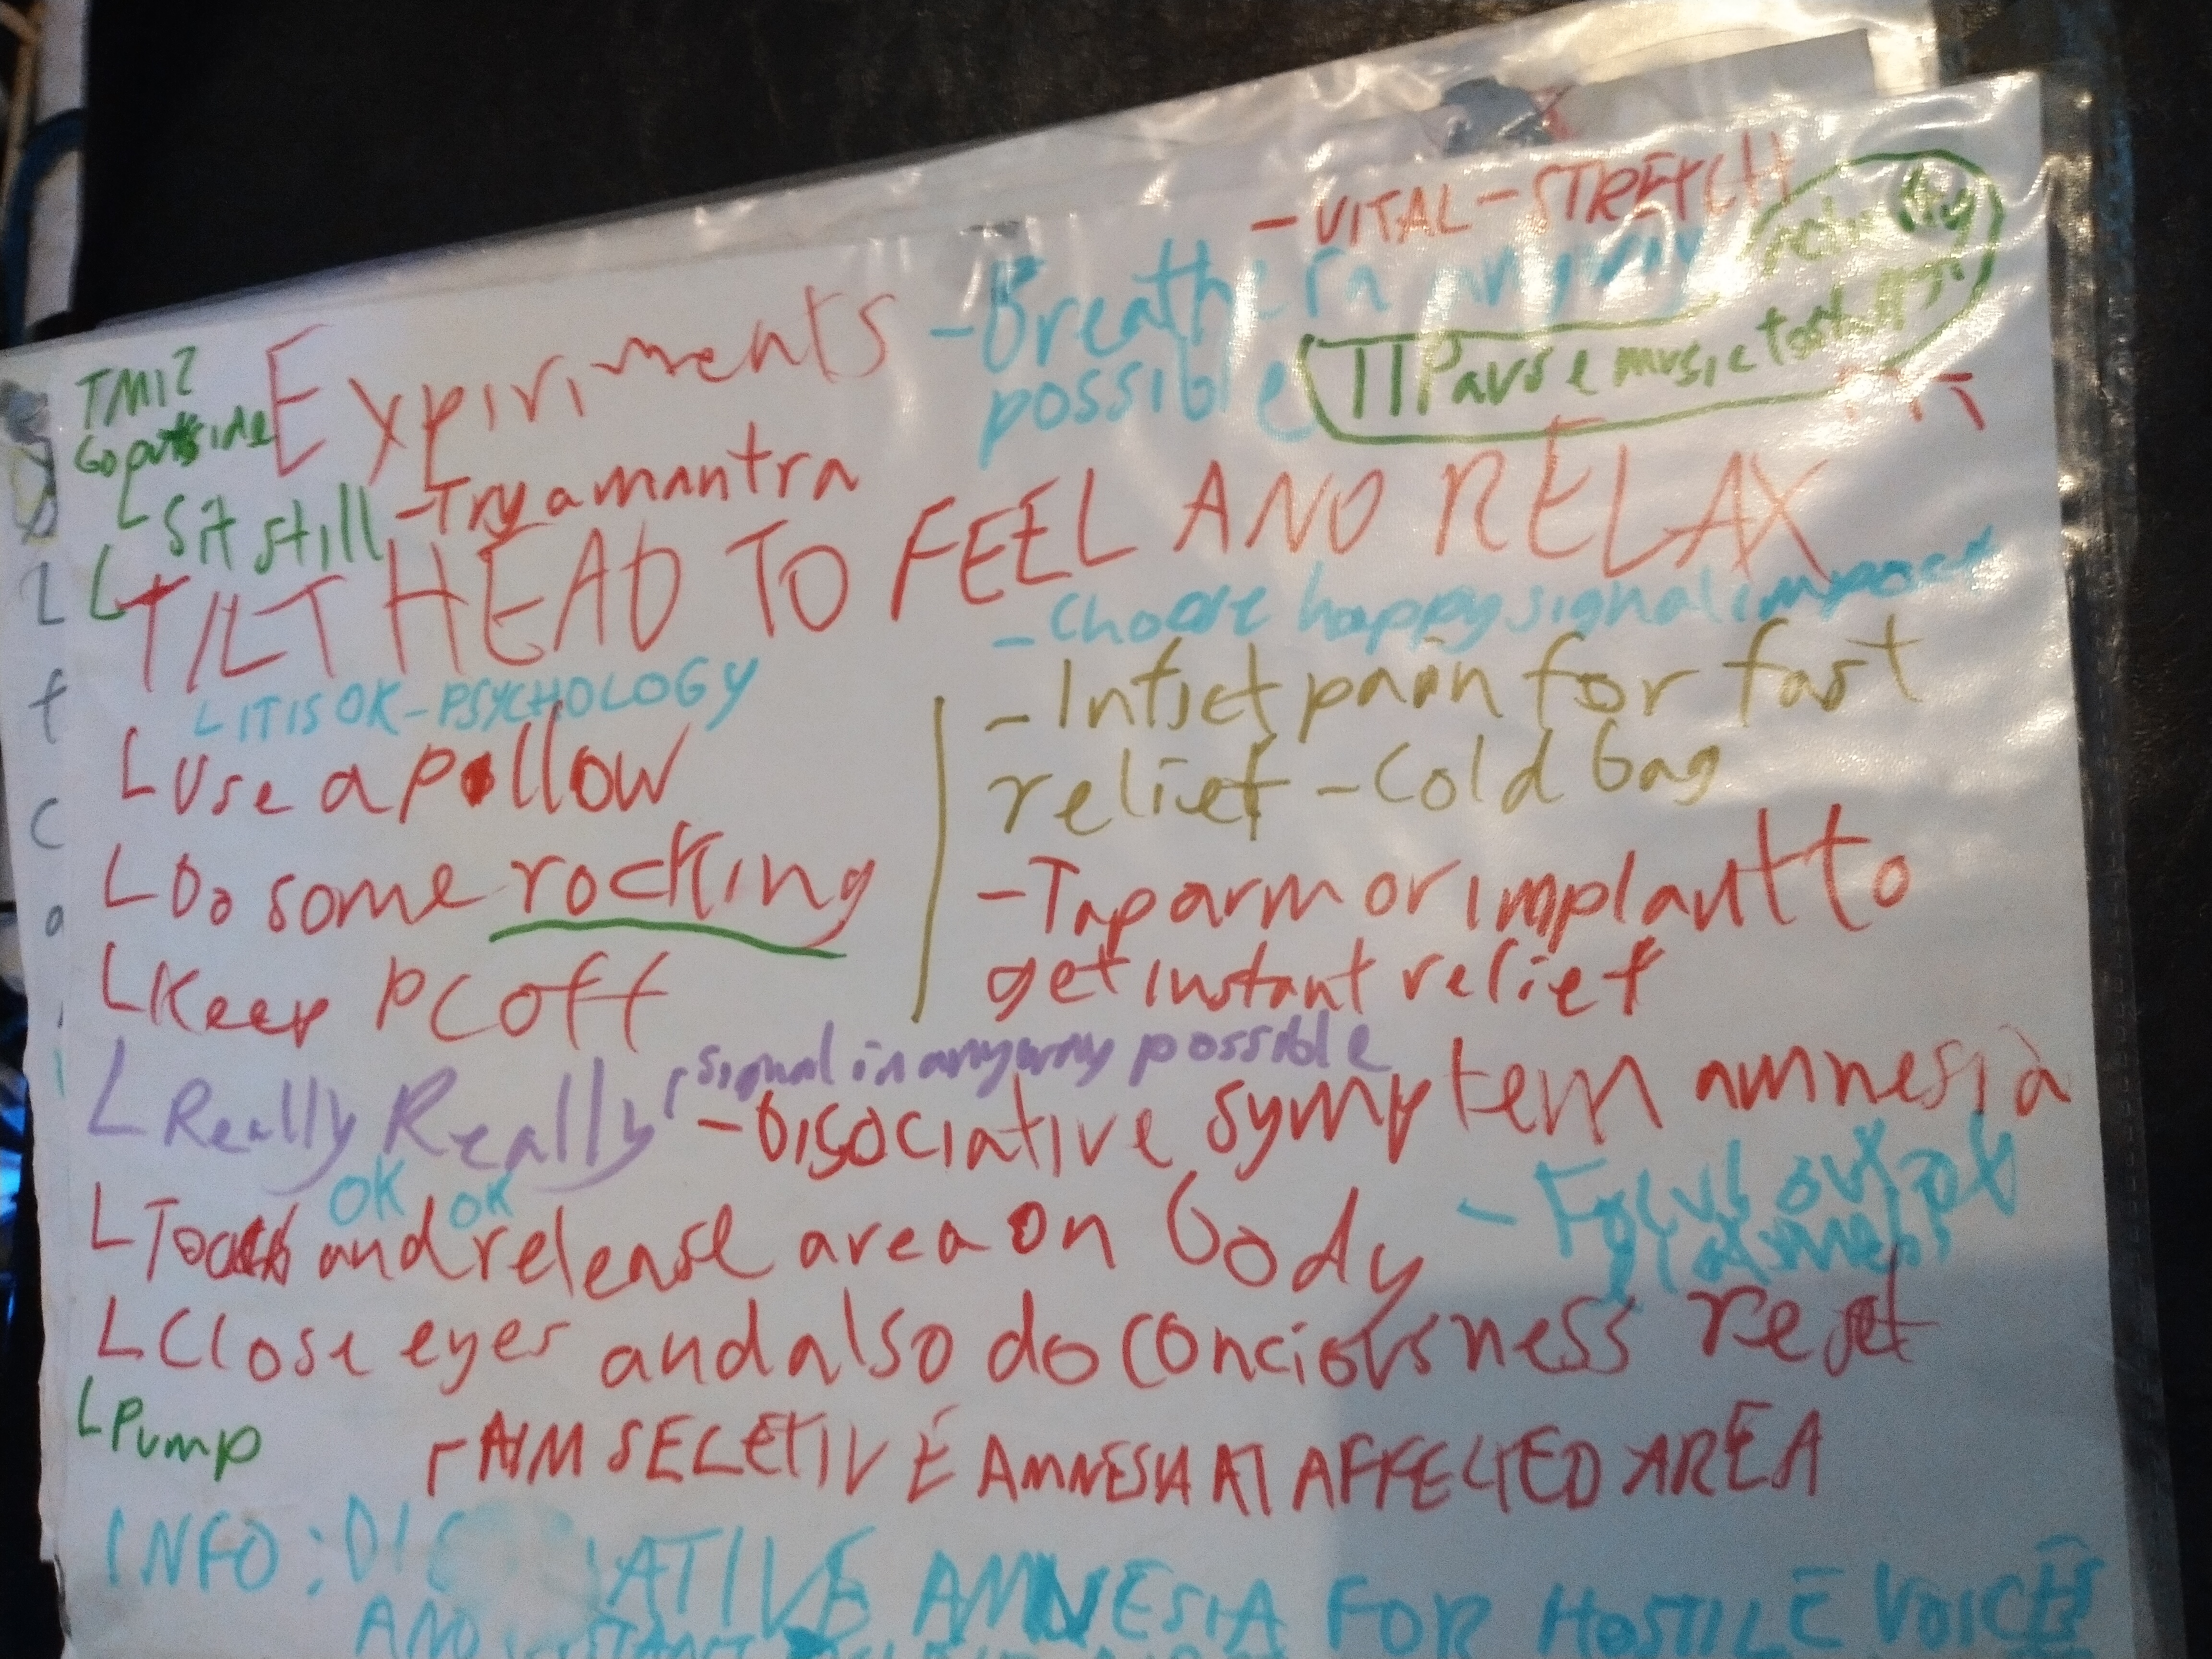 - VITAL - STRETCH
Expiriments
- Breath in anyway
possible
II Pause music to
TMI?
Go outside
L Sit still
- Try a mantra
L TILT HEAD TO FEEL AND RELAX
L IT IS OK - PSYCHOLOGY
- Choose happy signal
- Inflict pain for fast
relief - Cold bag
L Use a pillow
L Do some rocking
- Tap arm or implant to
get instant relief
L Keep PC off
L Really Really
signal in anyway possible
- Disociative symptem amnesia
OK OK
L Touch and release area on body
- Focus out of
L Close eyes and also do conciousness reset
L Pump
AIM SELETIVE AMNESIA AT AFFECTED AREA
INFO: AMNESIA FOR HOSTILE VOICES
AND